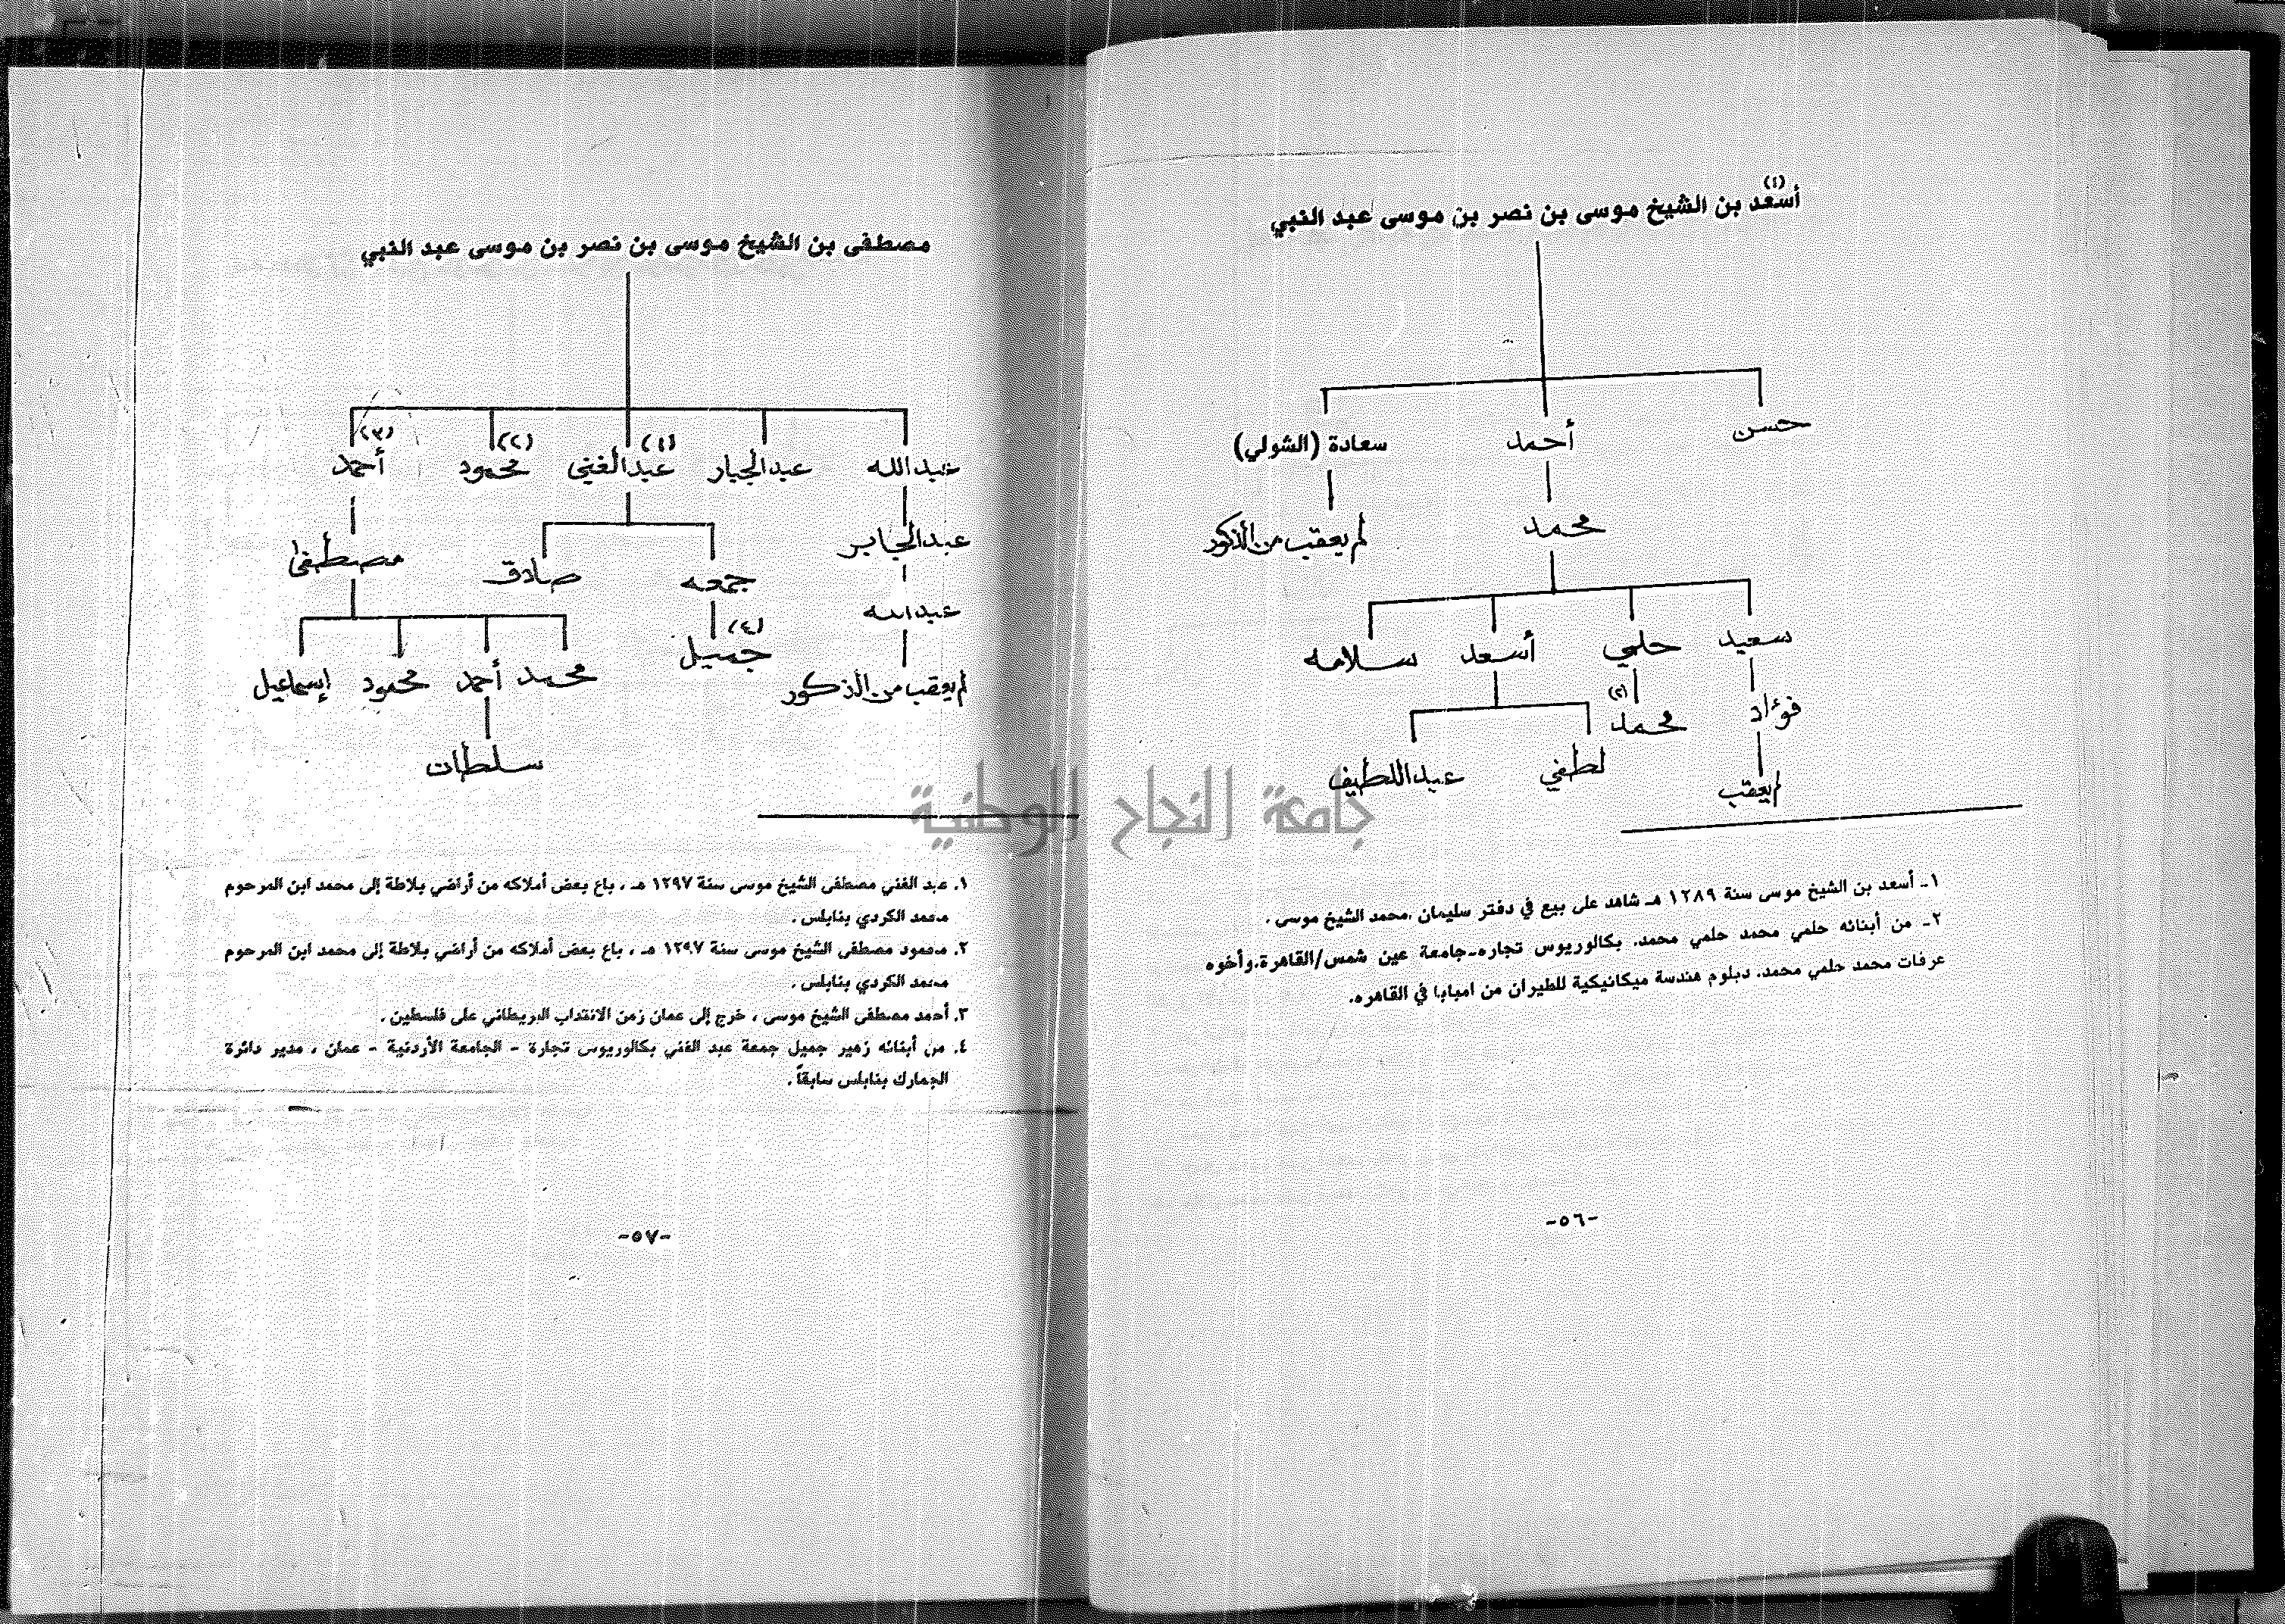 (١)
أسعد بن الشيخ موسى بن نصر بن موسى عبد النبي
حسن أحمد سعادة (الشولي)
محمد لم يعقب من الذكور
سعيد حلمي أسعد سلامه
(٢)
فؤاد محمد
لم يعقب لطفي عبد اللطيف
١ـ أسعد بن الشيخ موسى سنة ١٢٨٩ هـ شاهد على بيع في دفتر سليمان .محمد الشيخ موسى .
٢ـ من أبنائه حلمي محمد حلمي محمد. بكالوريوس تجاره-جامعة عين شمس/القاهرة.وأخوه
عرفات محمد حلمي محمد. دبلوم هندسة ميكانيكية للطيران من امبابا في القاهره.
-٥٦-
مصطفى بن الشيخ موسى بن نصر بن موسى عبد النبي
(١) (٢) (٣)
عبدالله عبدالجبار عبدالغني محمود أحمد
عبدالجابر جمعه صادق مصطفى
عبدالله (٤) جميل
لم يعقب من الذكور محمد أحمد محمود إسماعيل
سلطان
١. عبد الغني مصطفى الشيخ موسى سنة ١٢٩٧ هـ ، باع بعض أملاكه من أراضي بلاطة إلى محمد ابن المرحوم
محمد الكردي بنابلس .
٢. محمود مصطفى الشيخ موسى سنة ١٢٩٧ هـ ، باع بعض أملاكه من أراضي بلاطة إلى محمد ابن المرحوم
محمد الكردي بنابلس .
٣. أحمد مصطفى الشيخ موسى ، خرج إلى عمان زمن الانتداب البريطاني على فلسطين .
٤. من أبنائه زهير جميل جمعة عبد الغني بكالوريوس تجارة - الجامعة الأردنية - عمان ، مدير دائرة
الجمارك بنابلس سابقاً .
-٥٧-
جامعة النجاح الوطنية